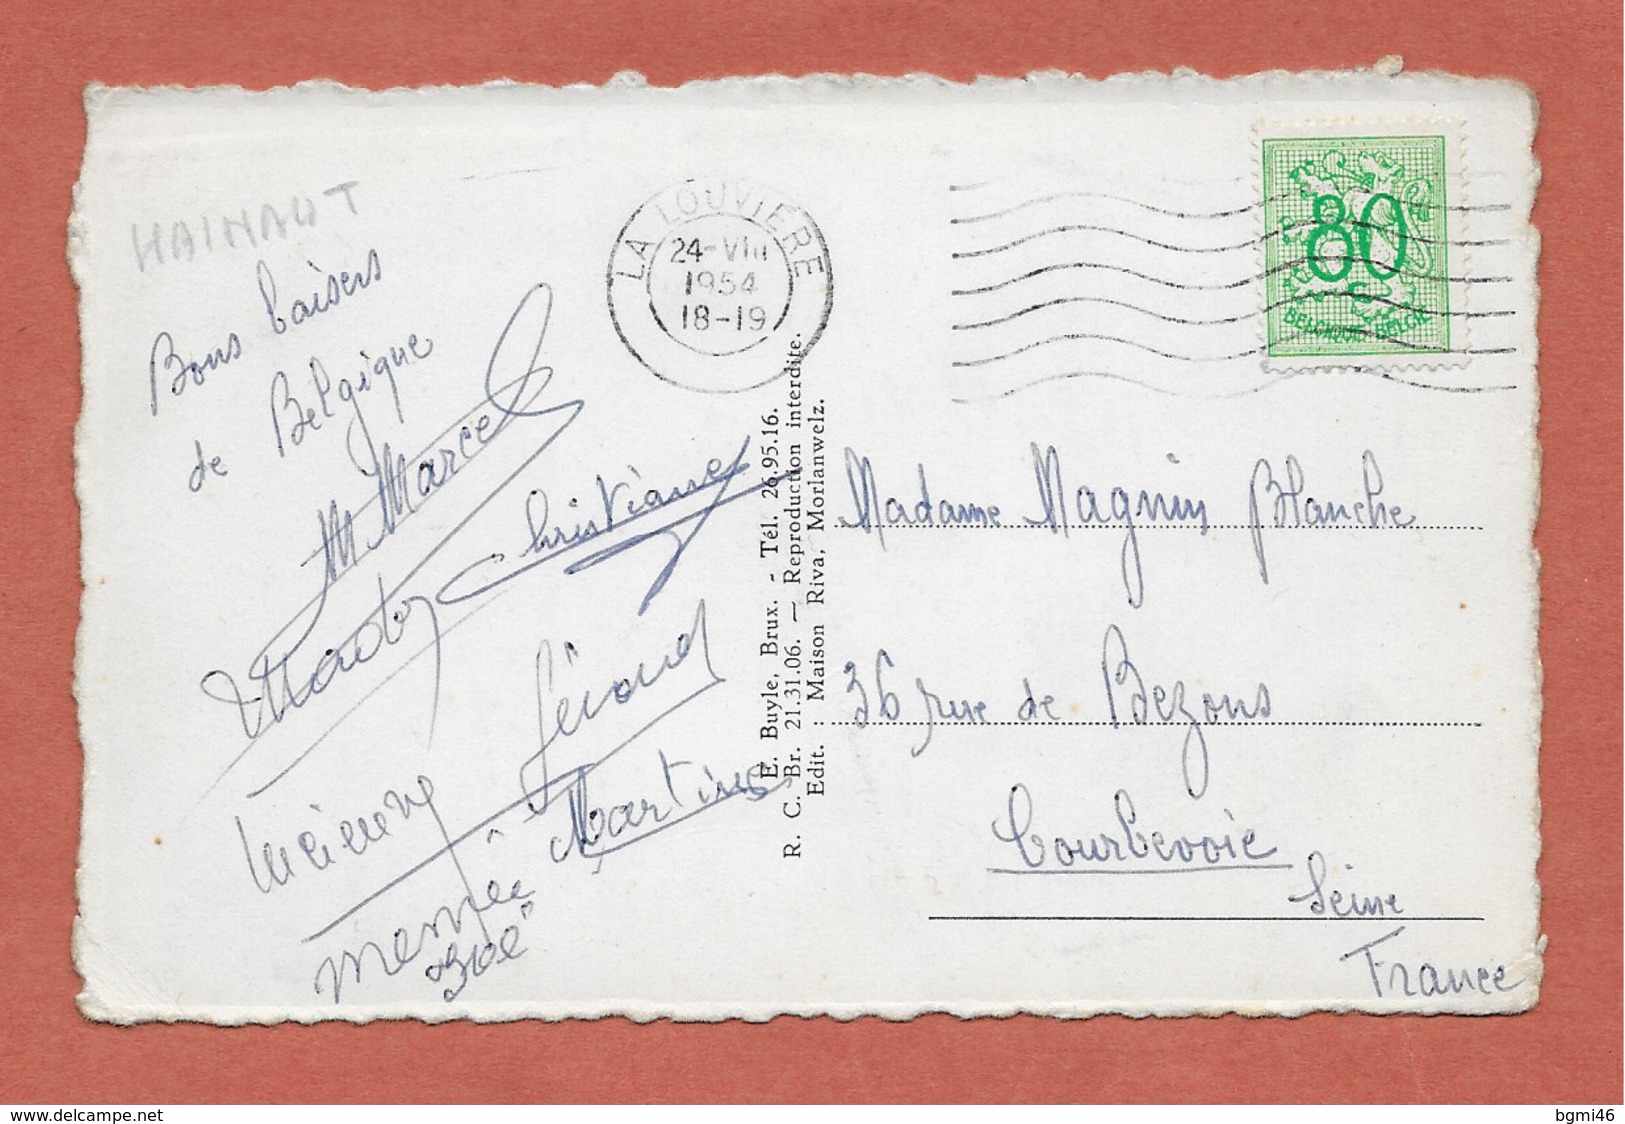 HAINAUT
Bons baisers
de Belgique
Marcel
Christiane
Gérard
Martine
Zoé
LA LOUVIERE
24-VIII
1954
18-19
80
BELGIQUE-BELGIE
R. C. Br. 21.31.06. — Reproduction interdite.
E. Buyle, Brux. - Tél. 26.95.16.
Edit. : Maison Riva, Morlanwelz.
Madame Magnin Blanche
36 rue de Bezons
Courbevoie
Seine
France
www.delcampe.net
bgmi46